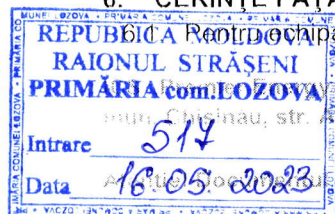 6. CERINȚE FAȚĂ
6.1. Pentru echipa
REPUBLICA MOLDOVA
RAIONUL STRĂȘENI
PRIMĂRIA com.LOZOVA
mun. Chișinău, str. A
Intrare 517
Data 16.05.2023